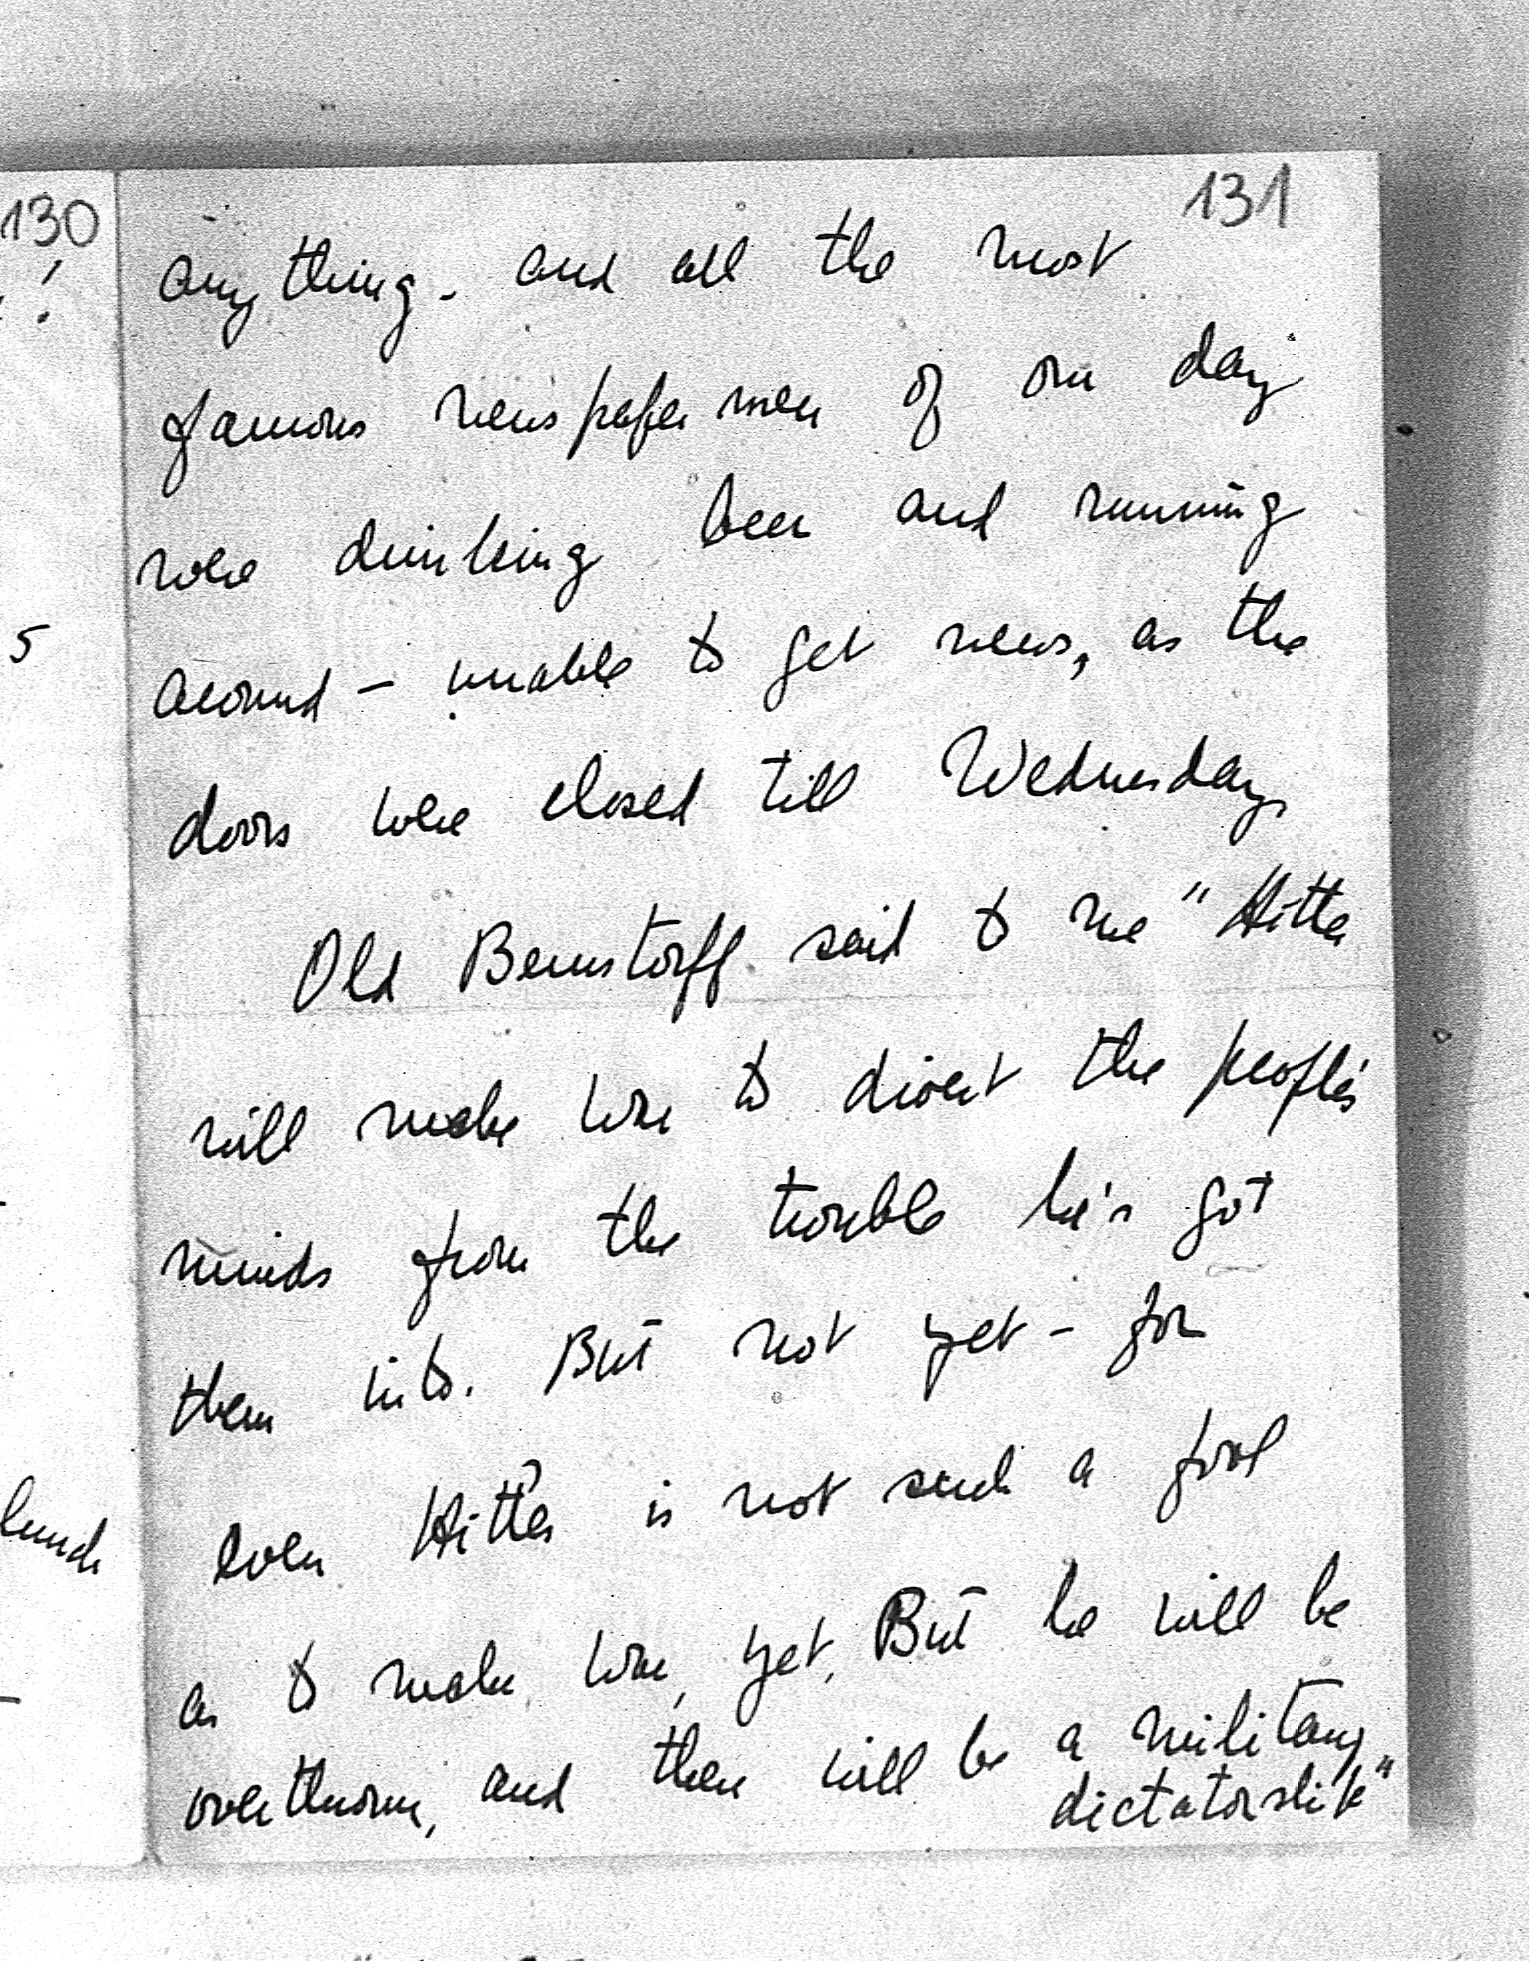 130
131
anything - and all the most
famous newspaper men of our day
were drinking beer and running
around - unable to get news, as the
doors were closed till Wednesday.
Old Bernstorff said to me "Hitler
will make war to divert the people's
minds from the trouble he's got
them into. But not yet - for
even Hitler is not such a fool
as to make war, yet. But he will be
overthrown, and there will be a military
dictatorship"
!
5
lunch